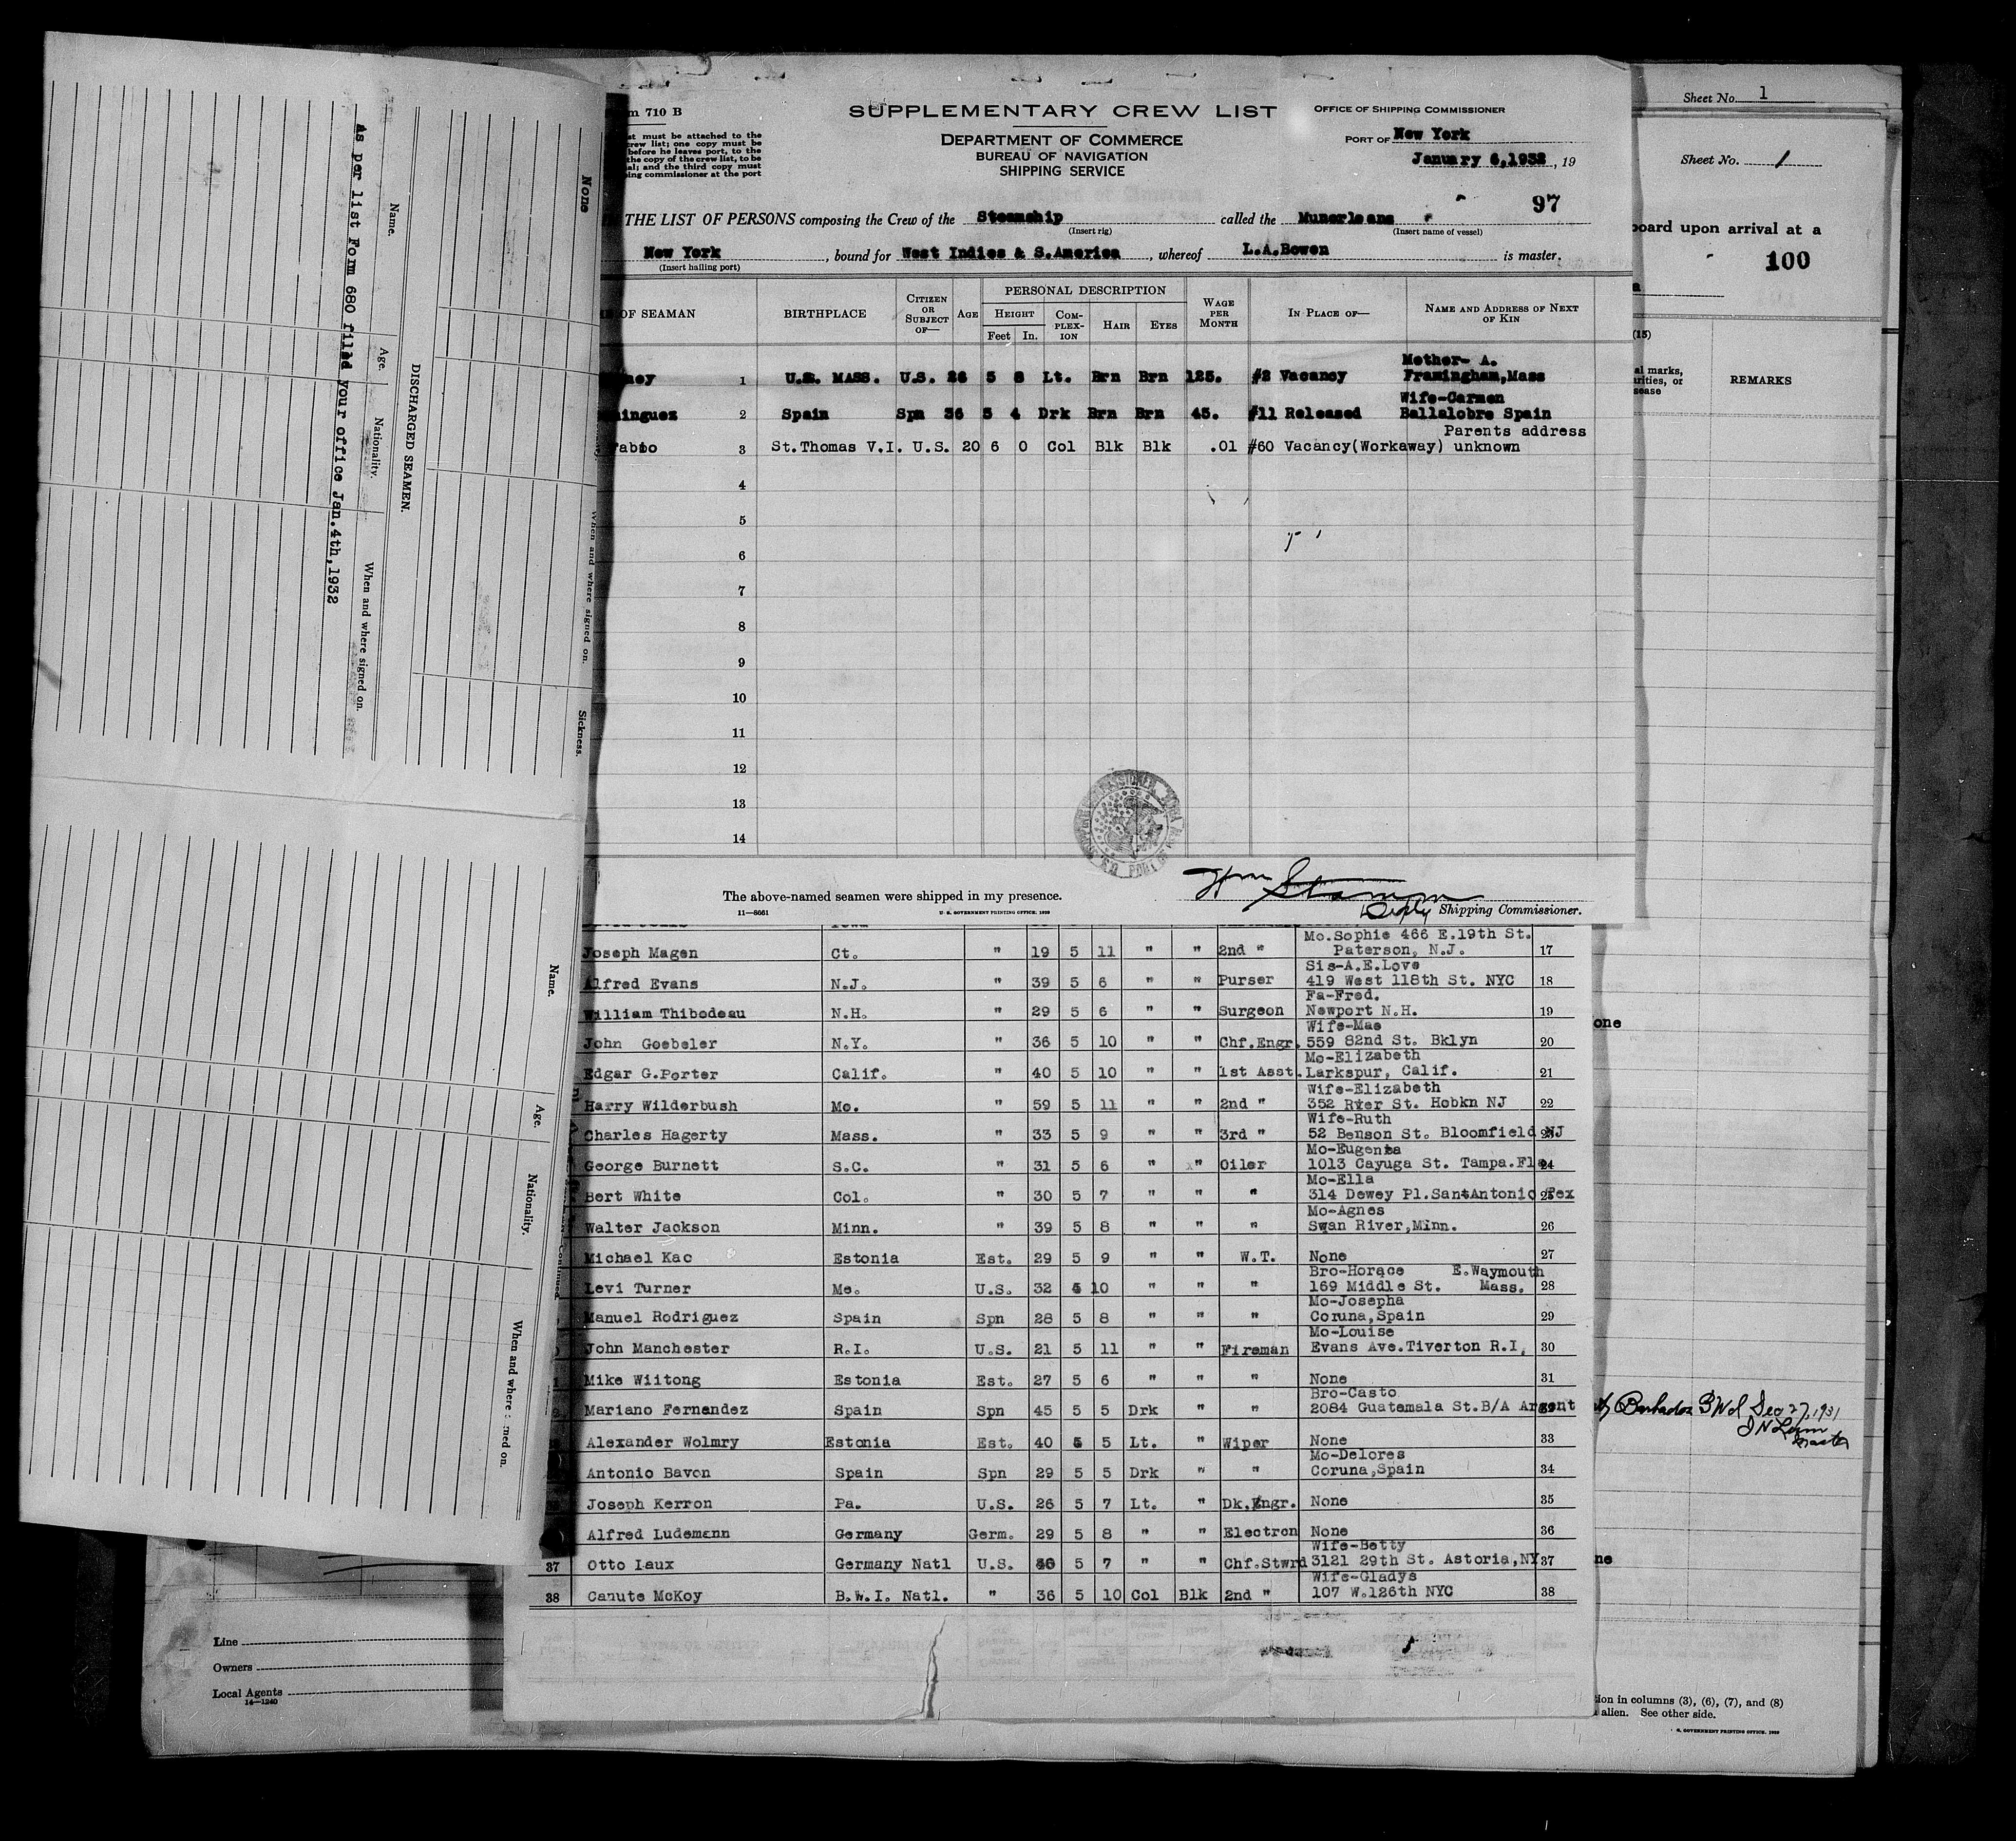 m 710 B
SUPPLEMENTARY CREW LIST
OFFICE OF SHIPPING COMMISSIONER
st must be attached to the
crew list; one copy must be
before he leaves port, to the
the copy of the crew list, to be
al; and the third copy must
ing commissioner at the port
DEPARTMENT OF COMMERCE
BUREAU OF NAVIGATION
SHIPPING SERVICE
PORT OF New York
January 6,1932, 19
97
THE LIST OF PERSONS composing the Crew of the Steamship called the Munorleans
(Insert rig) (Insert name of vessel)
New York, bound for West Indies & S.America, whereof L.A.Bowen is master.
(Insert hailing port)
OF SEAMAN BIRTHPLACE CITIZEN OR SUBJECT OF— AGE PERSONAL DESCRIPTION HEIGHT Feet In. COMPLEXION HAIR EYES WAGE PER MONTH IN PLACE OF— NAME AND ADDRESS OF NEXT OF KIN
Mother- A.
ney 1 U.S. MASS. U.S. 26 5 8 Lt. Brn Brn 125. #2 Vacancy Framingham,Mass
Wife-Carmen
minguez 2 Spain Spn 36 5 4 Drk Brn Brn 45. #11 Released Ballalobre Spain
Parents address
Fabio 3 St.Thomas V.I. U.S. 20 6 0 Col Blk Blk .01 #60 Vacancy(Workaway) unknown
4
5
6
7
8
9
10
11
12
13
14
The above-named seamen were shipped in my presence.
Wm Stamm
Deputy Shipping Commissioner.
11—8661 U. S. GOVERNMENT PRINTING OFFICE: 1929
Mo.Sophie 466 E.19th St.
Joseph Magen Ct. " 19 5 11 " " 2nd " Paterson, N.J. 17
Sis-A.E.Love
Alfred Evans N.J. " 39 5 6 " " Purser 419 West 118th St. NYC 18
Fa-Fred.
William Thibodeau N.H. " 29 5 6 " " Surgeon Newport N.H. 19
Wife-Mae
John Goebeler N.Y. " 36 5 10 " " Chf.Engr. 559 82nd St. Bklyn 20
Mo-Elizabeth
Edgar G.Porter Calif. " 40 5 10 " " 1st Asst. Larkspur, Calif. 21
Wife-Elizabeth
Harry Wilderbush Mo. " 59 5 11 " " 2nd " 352 River St. Hobkn NJ 22
Wife-Ruth
Charles Hagerty Mass. " 33 5 9 " " 3rd " 52 Benson St. Bloomfield NJ 23
Mo-Eugenia
George Burnett S.C. " 31 5 6 " " Oiler 1013 Cayuga St. Tampa.Fla 24
Mo-Ella
Bert White Col. " 30 5 7 " " " 314 Dewey Pl.SantAntonio Tex 25
Mo-Agnes
Walter Jackson Minn. " 39 5 8 " " " Swan River,Minn. 26
Michael Kac Estonia Est. 29 5 9 " " W.T. None 27
Bro-Horace E.Waymouth
Levi Turner Me. U.S. 32 5 10 " " " 169 Middle St. Mass. 28
Mo-Josepha
Manuel Rodriguez Spain Spn 28 5 8 " " " Coruna,Spain 29
Mo-Louise
John Manchester R.I. U.S. 21 5 11 " " Fireman Evans Ave.Tiverton R.I. 30
Mike Wiitong Estonia Est. 27 5 6 " " " None 31
Bro-Casto
Mariano Fernandez Spain Spn 45 5 5 Drk " " 2084 Guatemala St.B/A Argent
Alexander Wolmry Estonia Est. 40 5 5 Lt. " Wiper None 33
Mo-Delores
Antonio Bavon Spain Spn 29 5 5 Drk " " Coruna,Spain 34
Joseph Kerron Pa. U.S. 26 5 7 Lt. " Dk.Engr. None 35
Alfred Ludemann Germany Germ. 29 5 8 " " Electron None 36
Wife-Betty
37 Otto Laux Germany Natl U.S. 5 7 " " Chf.Stwrd 3121 29th St. Astoria,NY 37
Wife-Gladys
38 Canute McKoy B.W.I. Natl. " 36 5 10 Col Blk 2nd " 107 W.126th NYC 38
None
When and where signed on. Sickness.
DISCHARGED SEAMEN.
Name. Age. Nationality. When and where signed on.
As per list Form 680 filed your office Jan.4th,1932
Name. Age. Nationality. When and where signed on.
Sheet No. 1
Sheet No. 1
board upon arrival at a
100
(15)
al marks,
arities, or
sease
REMARKS
one
Barbados BWI Dec 27, 1931
master
ne
Line
Owners
Local Agents
14—1240
tion in columns (3), (6), (7), and (8)
alien. See other side.
U. S. GOVERNMENT PRINTING OFFICE: 1929